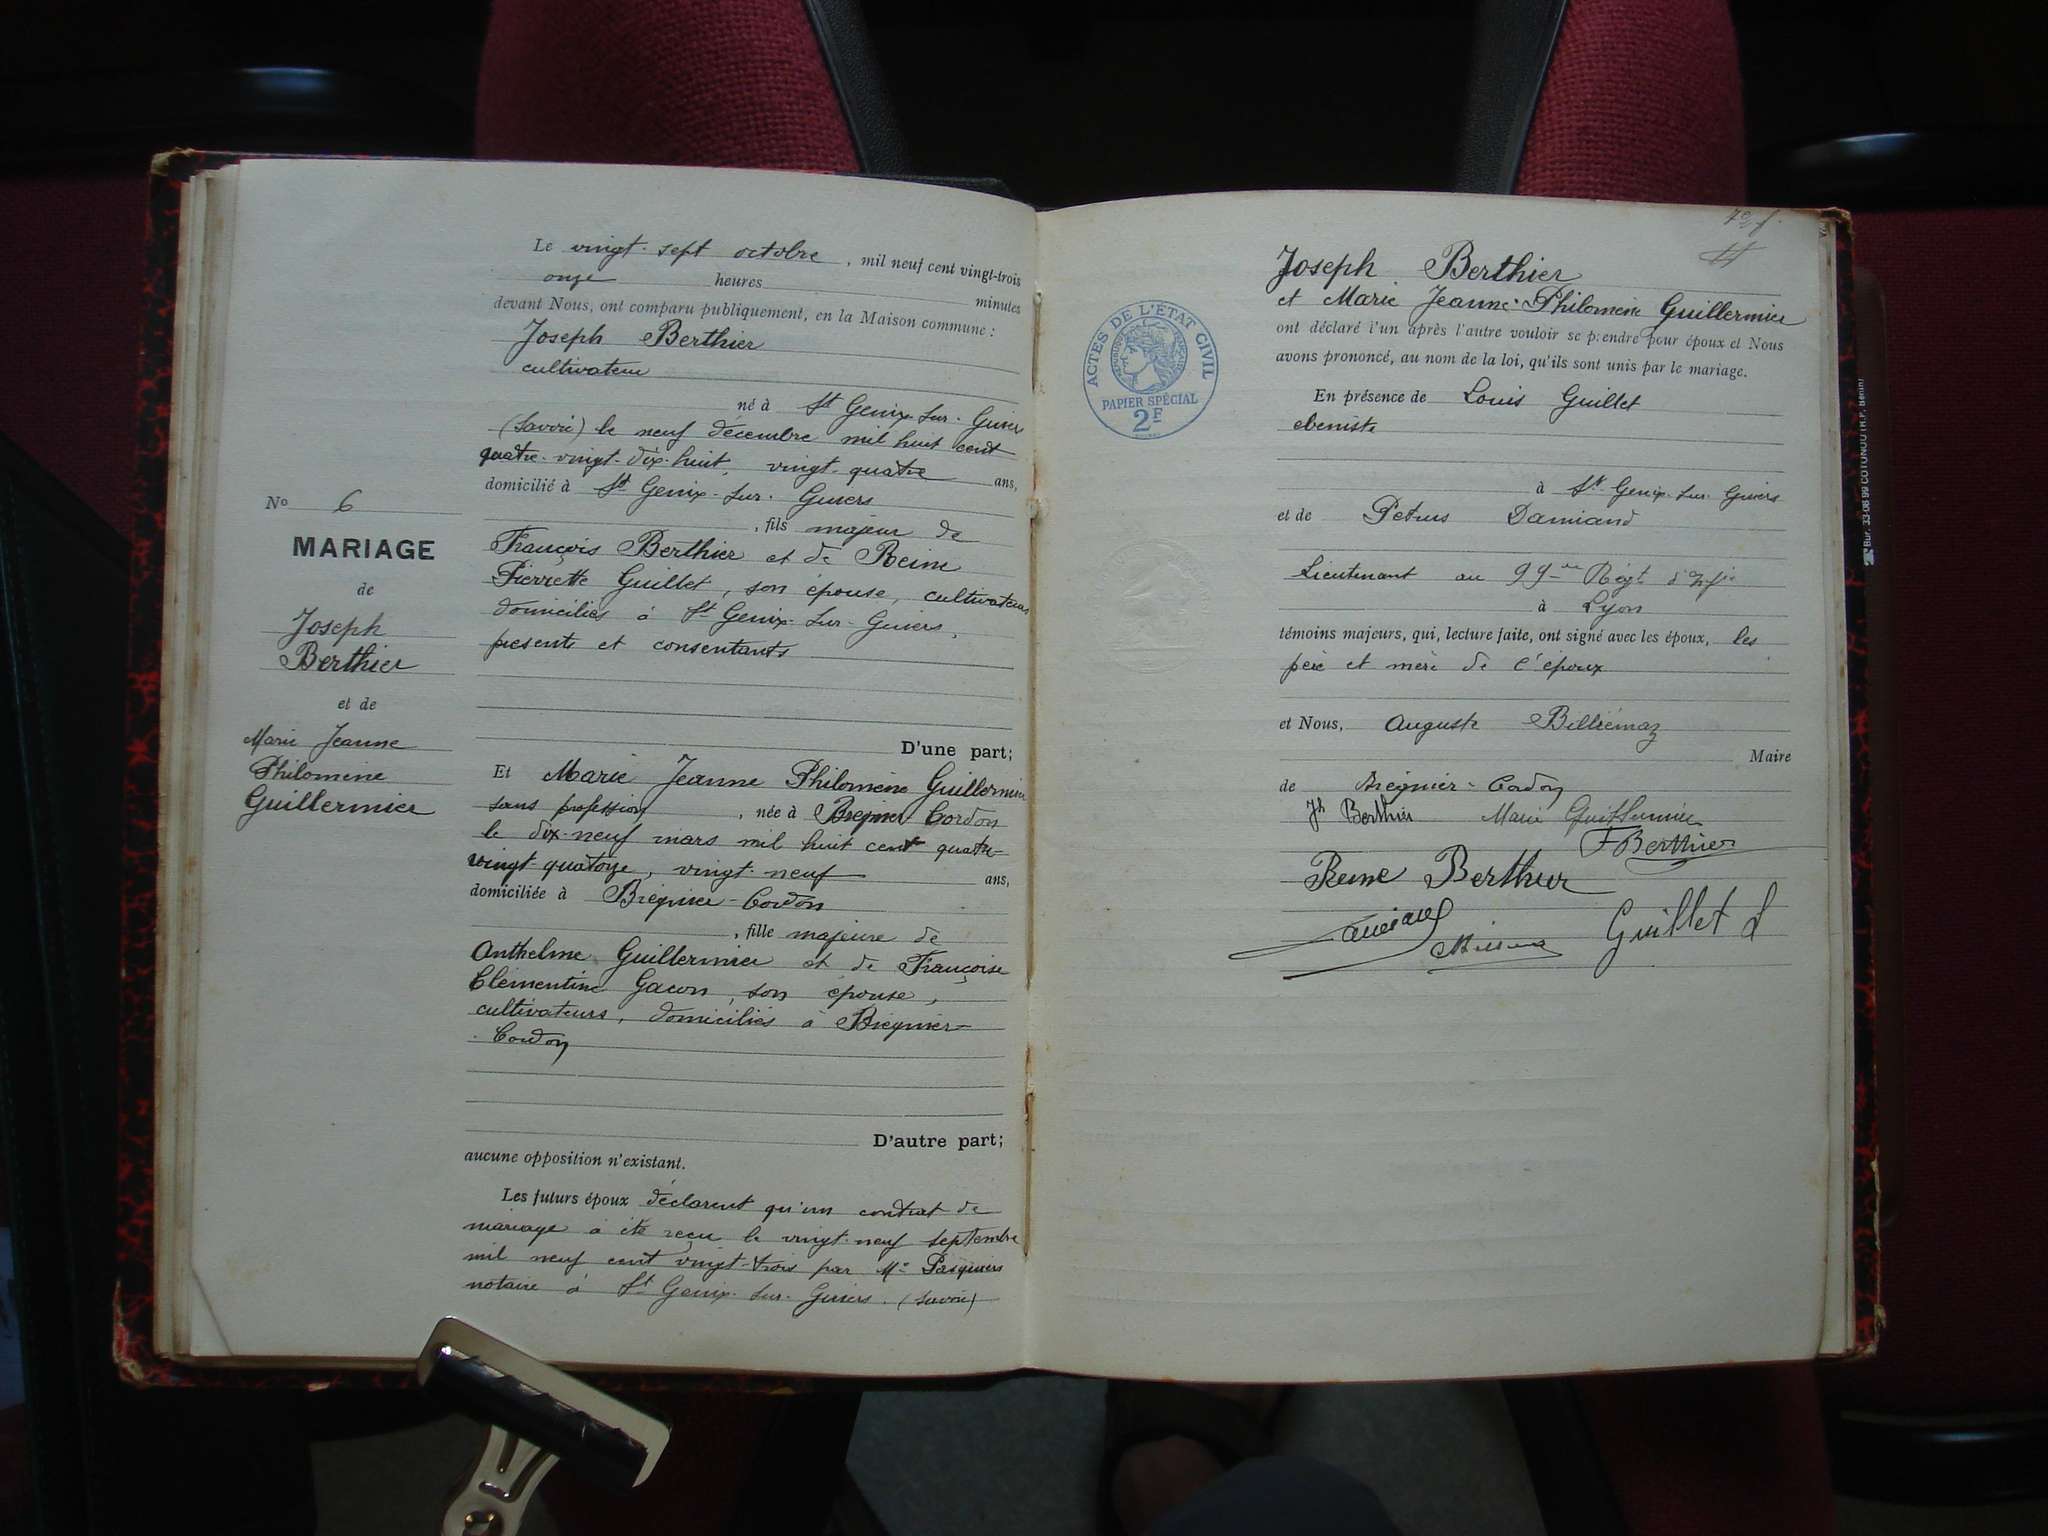 Le vingt-sept octobre, mil neuf cent vingt-trois
onze heures minutes
devant Nous, ont comparu publiquement, en la Maison commune :
Joseph Berthier
cultivateur
né à St Genix-sur-Guiers
(Savoie) le neuf décembre mil huit cent
quatre-vingt-dix-huit, vingt-quatre ans,
domicilié à St Genix-sur-Guiers
, fils majeur de
François Berthier et de Reine
Pierrette Guillet, son épouse, cultivateurs
domiciliés à St Genix-sur-Guiers,
présents et consentants
D'une part;
Et Marie Jeanne Philomène Guillermier
sans profession, née à Brégnier-Cordon
le dix-neuf mars mil huit cent quatre-
vingt quatorze, vingt-neuf ans,
domiciliée à Brégnier-Cordon
, fille majeure de
Anthelme Guillermier et de Françoise
Clémentine Gacon, son épouse,
cultivateurs, domiciliés à Brégnier-
Cordon
D'autre part;
aucune opposition n'existant.
Les futurs époux déclarent qu'un contrat de
mariage a été reçu le vingt-neuf septembre
mil neuf cent vingt-trois par Me Pasquiers
notaire à St Genix-sur-Guiers. (Savoie)
No 6
MARIAGE
de
Joseph
Berthier
et de
Marie Jeanne
Philomène
Guillermier
Joseph Berthier
et Marie Jeanne-Philomène Guillermier
ont déclaré l'un après l'autre vouloir se prendre pour époux et Nous
avons prononcé, au nom de la loi, qu'ils sont unis par le mariage.
En présence de Louis Guillet
ébéniste
à St-Genix-sur-Guiers
et de Petrus Damiand
Lieutenant au 99me Régt d'Infie
à Lyon
témoins majeurs, qui, lecture faite, ont signé avec les époux, les
père et mère de l'époux
et Nous, Auguste Billiémaz
Maire
de Brégnier-Cordon
Jh Berthier Marie Guillermier
F Berthier
Reine Berthier
Guillet L
ACTES DE L'ÉTAT CIVIL
RÉPUBLIQUE FRANÇAISE
PAPIER SPÉCIAL
2F